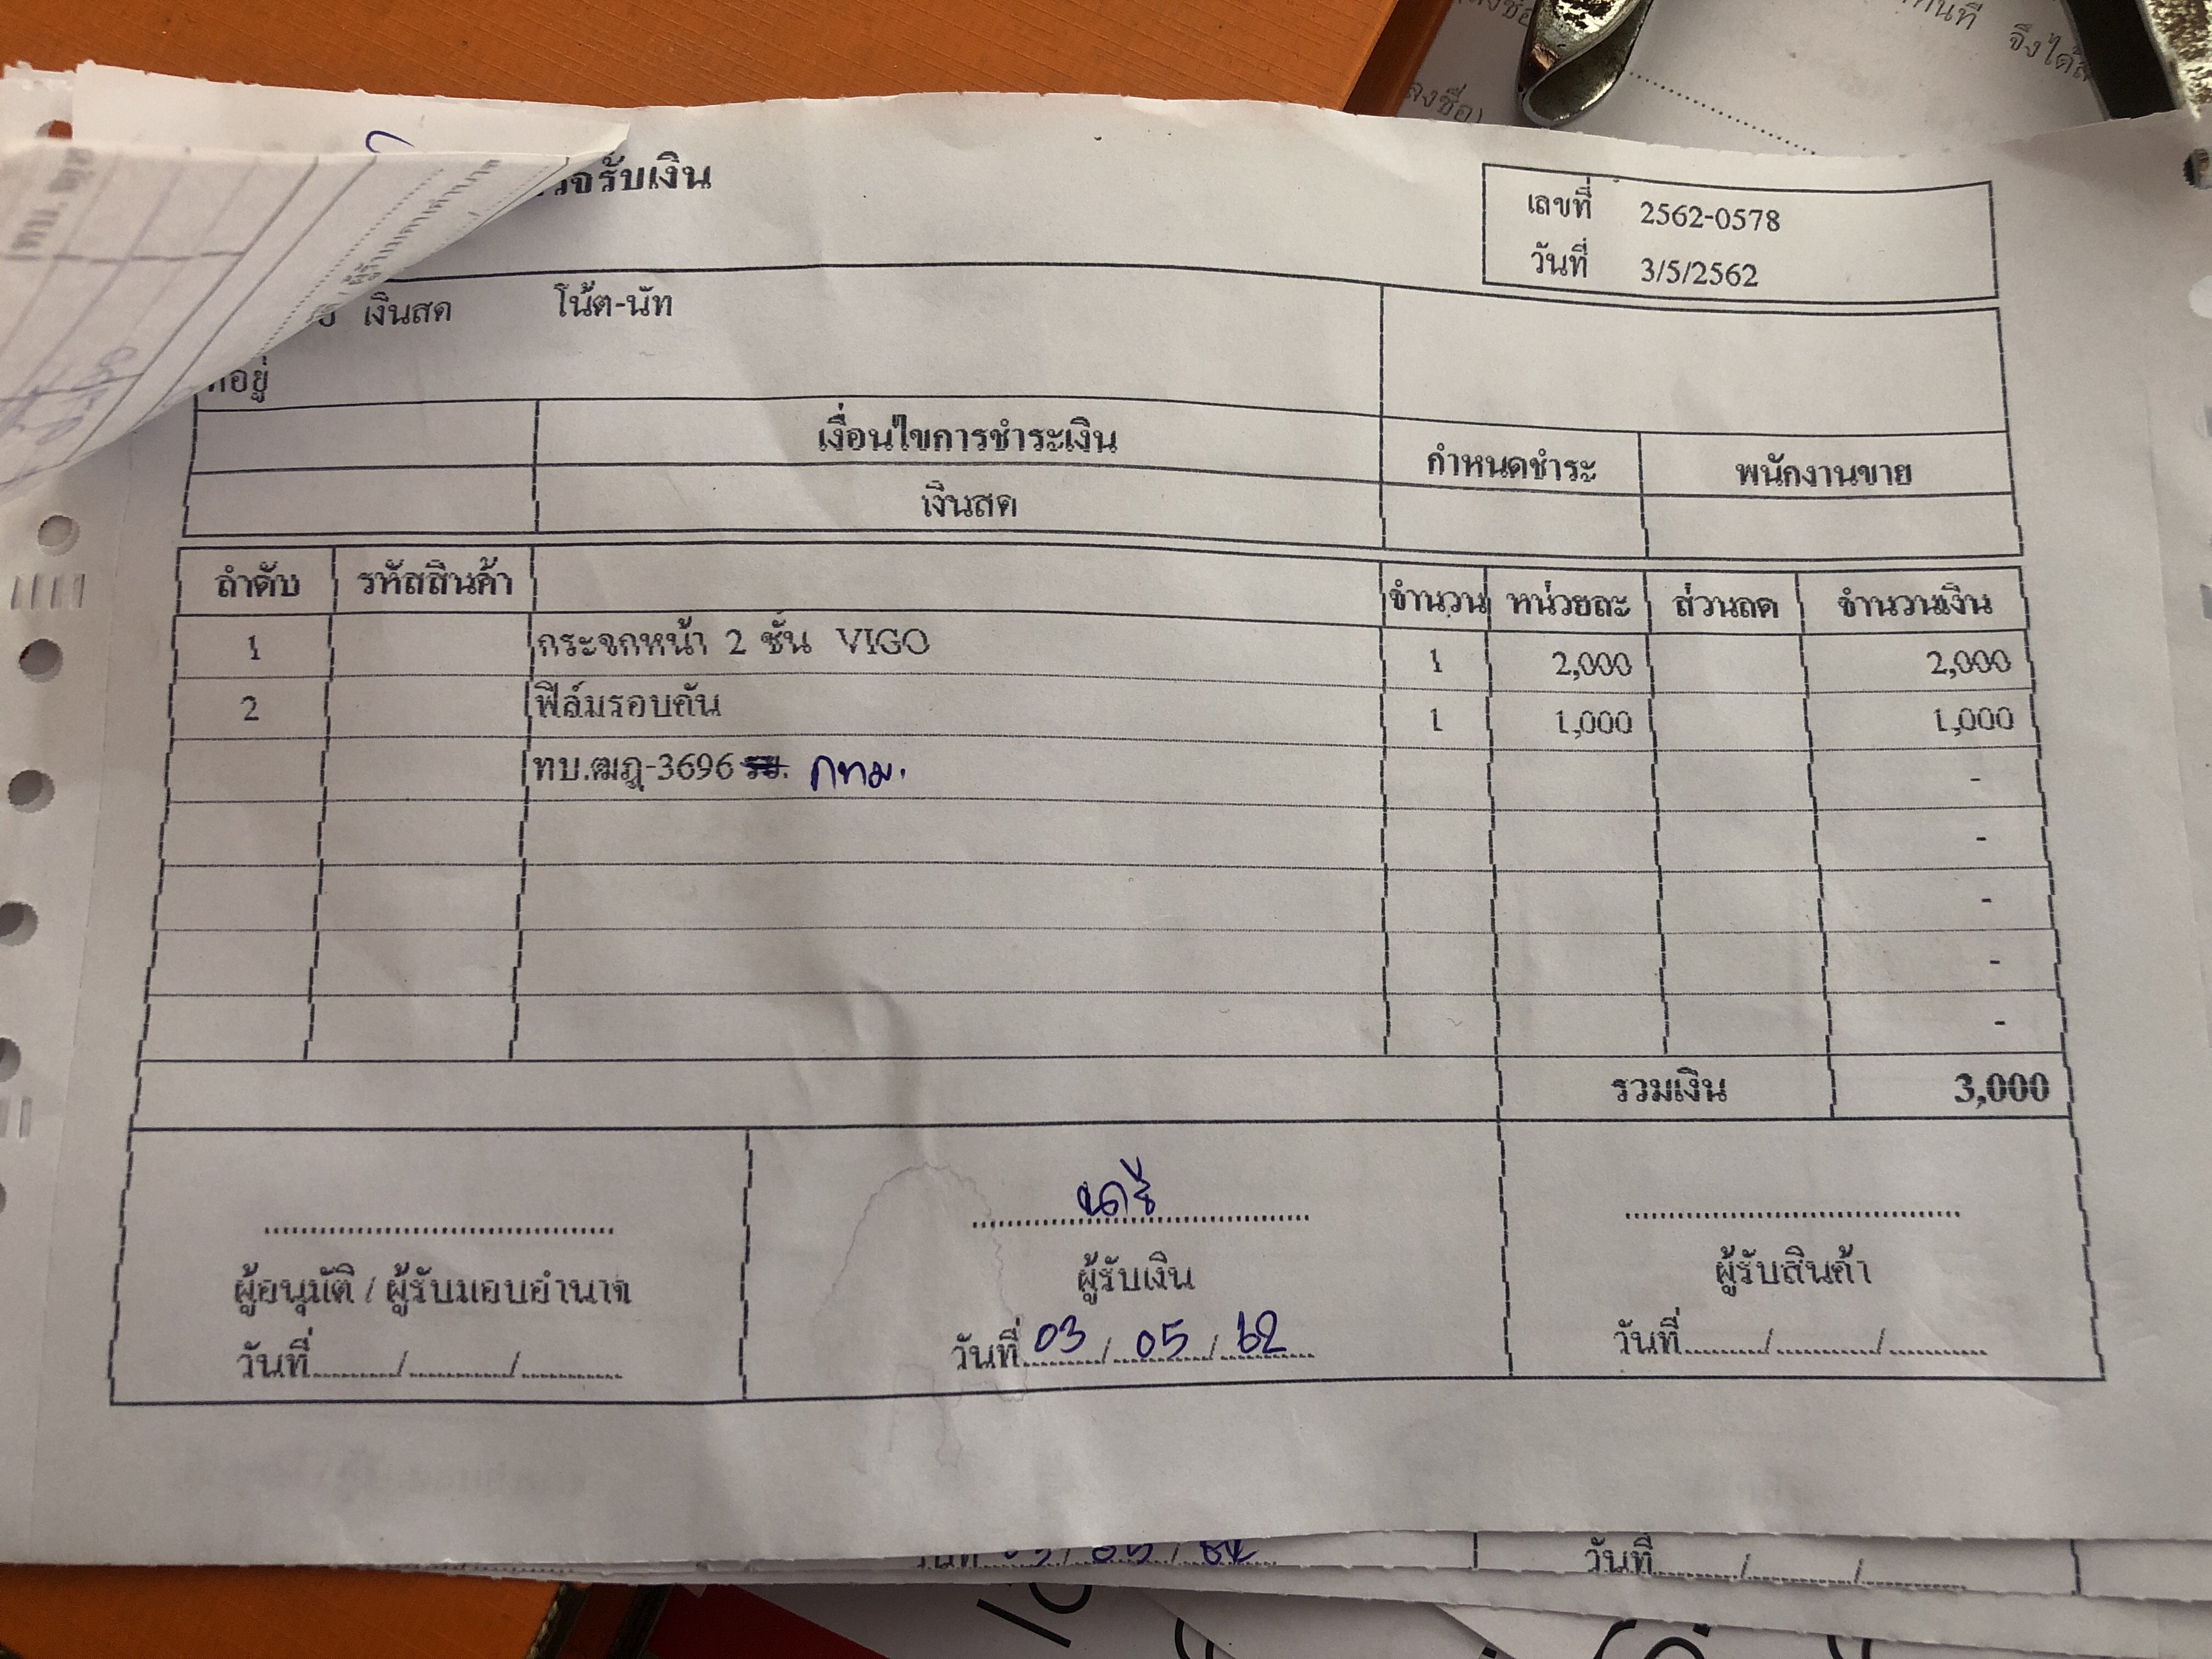 รับเงิน
เลขที่ 2562-0578
วันที่ 3/5/2562
เงินสด โน้ต-นัท
ที่อยู่
เงื่อนไขการชำระเงิน กำหนดชำระ พนักงานขาย
เงินสด
ลำดับ รหัสสินค้า จำนวน หน่วยละ ส่วนลด จำนวนเงิน
1 กระจกหน้า 2 ชั้น VIGO 1 2,000 2,000
2 ฟิล์มรอบคัน 1 1,000 1,000
ทบ.ฒฎ-3696 กทม. -
-
-
-
-
รวมเงิน 3,000
ผู้อนุมัติ / ผู้รับมอบอำนาจ ผู้รับเงิน ผู้รับสินค้า
วันที่........../............/............ วันที่ 03 / 05 / 62 วันที่........../............/............
วันที่ วันที่........../............/............